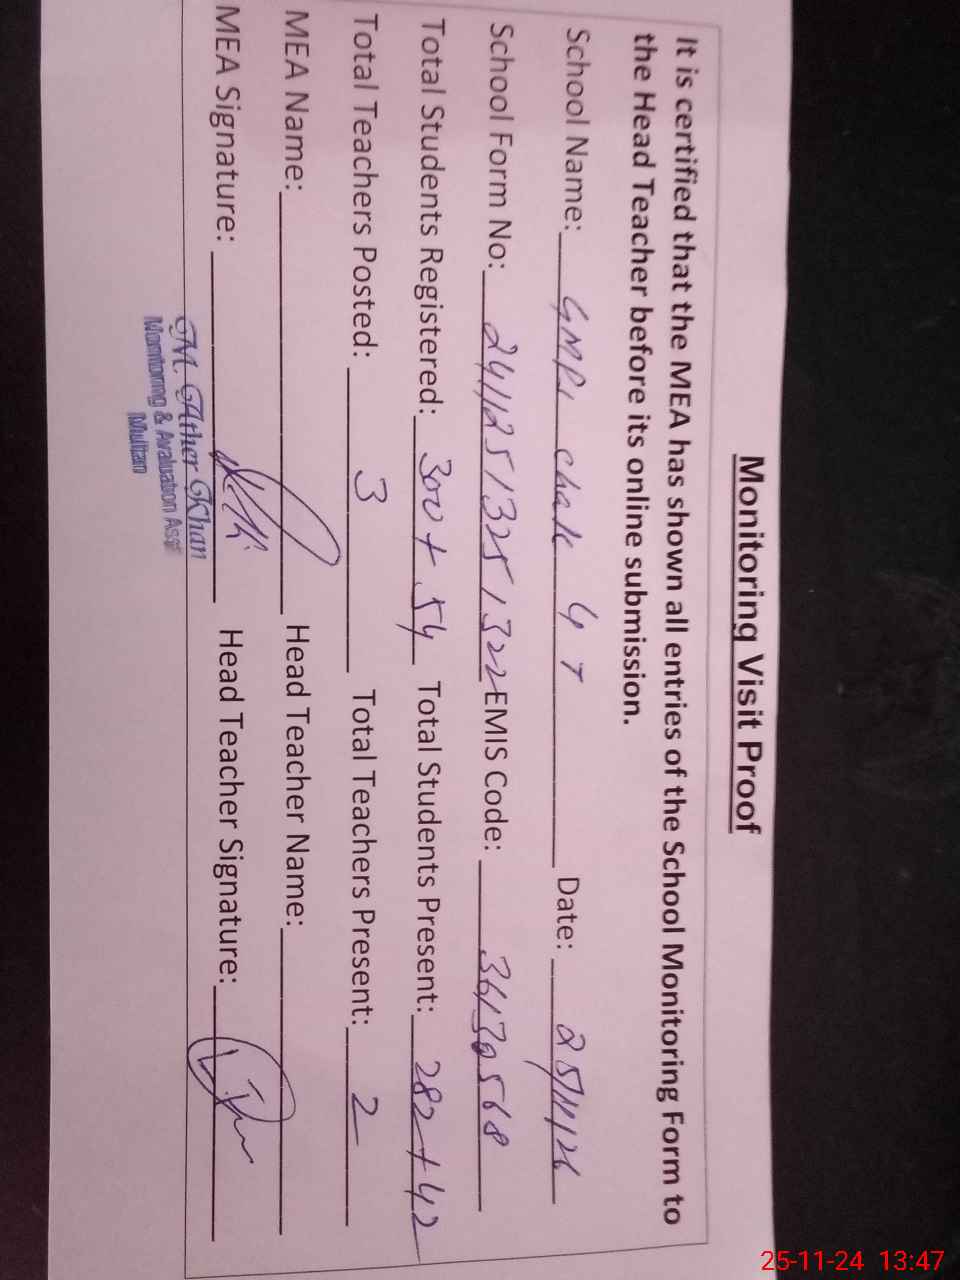 Monitoring Visit Proof
It is certified that the MEA has shown all entries of the School Monitoring Form to
the Head Teacher before its online submission.
School Name: GMPS chak 4 T Date: 25/11/24
School Form No: 241125 1325 1322 EMIS Code:
Total Students Registered: 300 + 54 Total Students Present: 282 + 42
Total Teachers Posted: 3 Total Teachers Present: 2
MEA Name: Head Teacher Name:
MEA Signature: Head Teacher Signature:
M. Ather Khan
Monitoring & Avaluation Asst
Multan
25-11-24 13:47